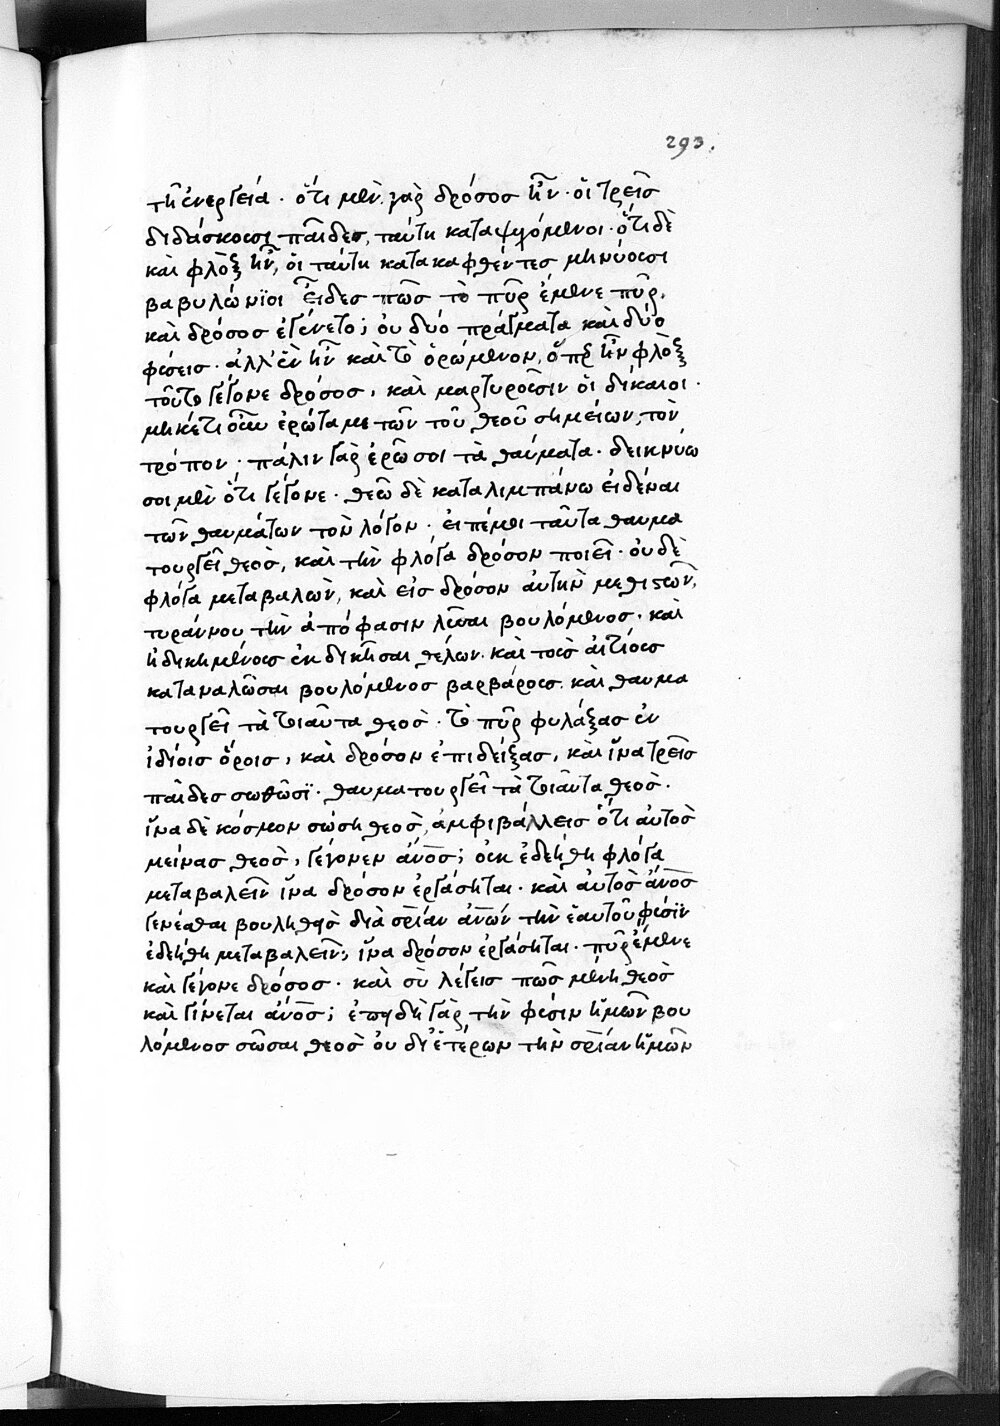 293.
τῆ ἐνεργεία · ὅτι μὲν γὰρ δρόσος ἦν · οἱ τρεῖς
διδάσκουσι παῖδες, ταύτη καταψυχόμενοι · ὅτι δὲ
καὶ φλὸξ ἦν, οἱ ταύτη κατακαφθέντες μηνύουσι
βαβυλώνϊοι εἶδες πῶς τὸ πῦρ ἔμενε πῦρ,
καὶ δρόσος ἐγένετο; οὐ δύο πράγματα καὶ δύο
φύσεις · ἀλλ' ἓν ἦν καὶ τὸ ὁρώμενον, ὅπερ ἦν φλὸξ
τοῦτο γέγονε δρόσος, καὶ μαρτυροῦσιν οἱ δίκαιοι ·
μηκέτι οὖν ἐρώτα με τῶν τοῦ θεοῦ σημείων, τὸν
τρόπον · πάλιν γὰρ ἐρῶ σοι τὰ θαύματα · δεικνύω
σοι μὲν ὅτι γέγονε · θεῶ δὲ καταλιμπάνω εἰδέναι
τῶν θαυμάτων τὸν λόγον · εἰπέ μοι ταῦτα θαυμα
τουργεῖ θεὸς, καὶ τὴν φλόγα δρόσον ποιεῖ · οὐδὲ
φλόγα μεταβαλὼν, καὶ εἰς δρόσον αὐτὴν μεθιστῶν,
τυράννου τὴν ἀπόφασιν λῦσαι βουλόμενος · καὶ
ἠδικημένους ἐκδικῆσαι θέλων · καὶ τοὺς αἰτίους
καταναλῶσαι βουλόμενος βαρβάρους · καὶ θαυμα
τουργεῖ τὰ τοιαῦτα θεὸς · τὸ πῦρ φυλάξας ἐν
ἰδίοις ὅροις, καὶ δρόσον ἐπιδείξας, καὶ ἵνα τρεῖς
παῖδες σωθῶσϊ · θαυματουργεῖ τὰ τοιαῦτα θεὸς ·
ἵνα δὲ κόσμον σώση θεὸς, ἀμφιβάλλεις ὅτι αὐτὸς
μείνας θεὸς, γέγονεν ἄνος; οὐκ ἐδεήθη φλόγα
μεταβαλεῖν ἵνα δρόσον ἐργάσηται · καὶ αὐτὸς ἄνος
γενέσθαι βουληθεὶς διὰ σρίαν ἀνων τὴν ἑαυτοῦ φύσϊν
ἐδεήθη μεταβαλεῖν, ἵνα δρόσον ἐργάσηται · πῦρ ἔμενε
καὶ γέγονε δρόσος · καὶ σὺ λέγεις πῶς μένη θεὸς
καὶ γίνεται ἄνος; ἐπειδὴ γὰρ τὴν φύσιν ἡμῶν βου
λόμενος σῶσαι θεὸς οὐ δι' ἑτέρων τὴν σρίαν ἡμῶν